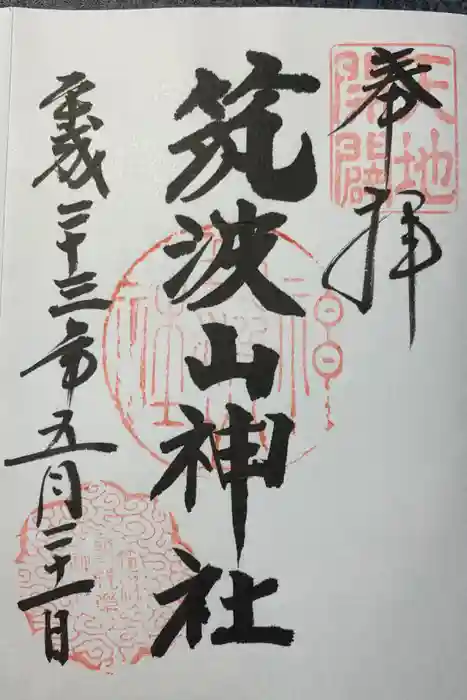 奉拝
天地
開闢
筑波山神社
平成二十三年五月三十一日